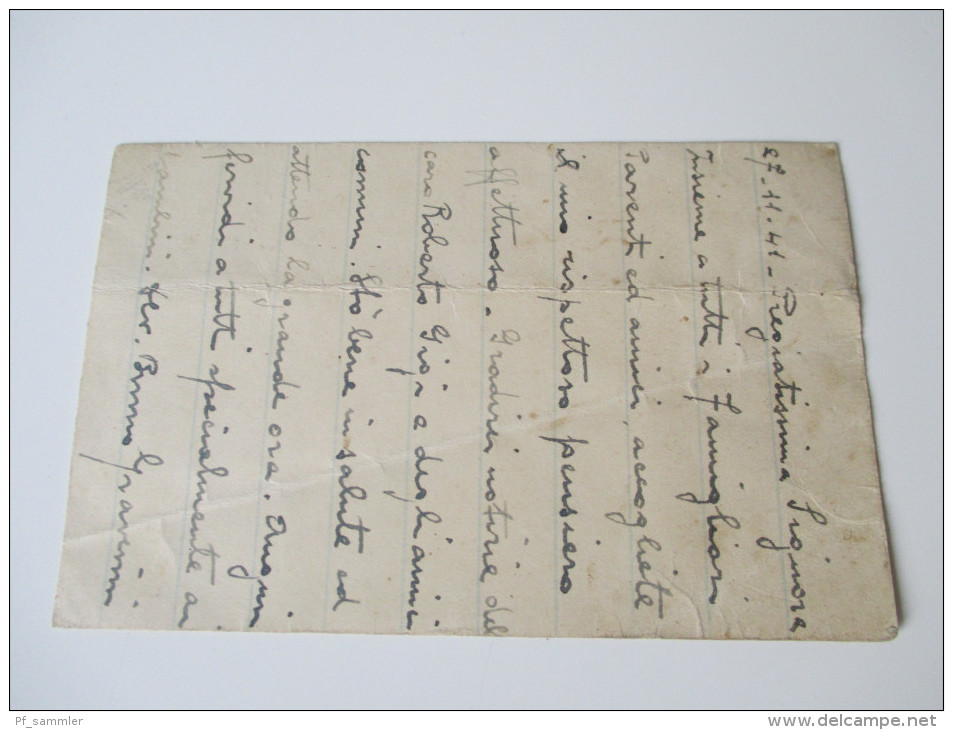 27-11-41- Pregiatissima Signora
Insieme a tutti i Famigliari
Parenti ed amici, accogliete
il mio rispettoso pensiero
affettuoso. Gradirei notizie del
caro Roberto Gigi e degli amici
comuni. Stò bene in salute ed
attendo la grande ora. Auguri
fervidi a tutti specialmente ai
bambini. Bruno Gravenni
Pf_sammler
www.delcampe.net